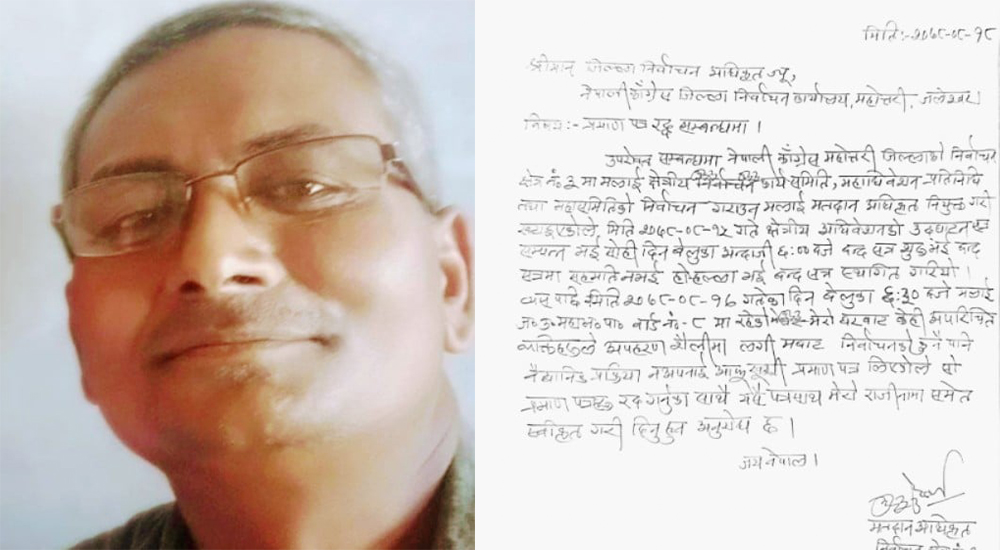 मिति:-२०७८-०८-१८
श्रीमान जिल्ला निर्वाचन अधिकृत ज्यू,
नेपाली काँग्रेस जिल्ला निर्वाचन कार्यालय, महोत्तरी, जलेश्वर।
विषय:- प्रमाण पत्र रद्द सम्बन्धमा।
उपरोक्त सम्बन्धमा नेपाली काँग्रेस महोत्तरी जिल्लाको निर्वाचन
क्षेत्र नं. ३ मा मलाई क्षेत्रीय कार्य समिति, महाधिवेशन प्रतिनिधि
तथा महासमितिको निर्वाचन गराउन मलाई मतदान अधिकृत नियुक्त गरी
मिति २०७८-०८-१५ गते क्षेत्रीय अधिवेशनको उद्घाटन सत्र
सम्पन्न भई सोही दिन बेलुका अन्दाजी ६:०० बजे बन्द सत्र सुरु भई बन्द
सत्रमा सहमति नभई हो-हल्ला भई बन्द सत्र स्थगित गरियो।
त्यस पछि मिति २०७८-०८-१६ गतेका दिन बेलुका ६:३० बजे मलाई
ज.उ.म.न.पा. वार्ड नं.- ८ मा रहेको मेरो घरबाट केही अपरिचित
व्यक्तिहरूले अपहरण शैलीमा लगी मबाट निर्वाचनको कुनै पनि
वैधानिक प्रक्रिया नअपनाई आफू खुसी प्रमाण पत्र लिएकोले सो
प्रमाण पत्र रद्द गर्नुका साथै यसै पत्रसाथ मेरो राजीनामा समेत
स्वीकृत गरी दिनुहुन अनुरोध छ।
जय नेपाल।
मतदान अधिकृत